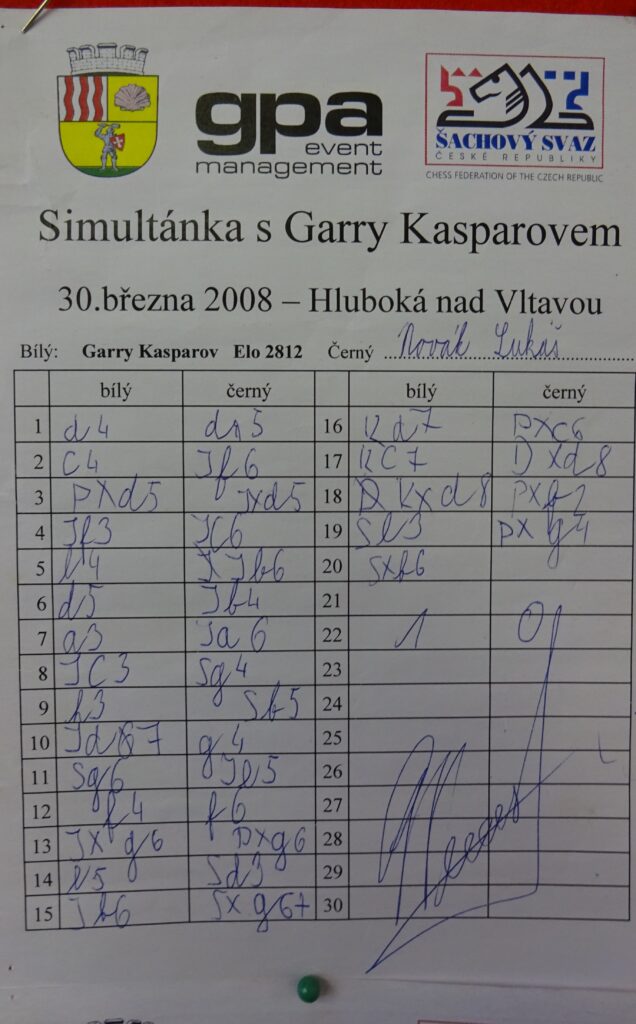 gpa
event
management
ŠACHOVÝ SVAZ
ČESKÉ REPUBLIKY
CHESS FEDERATION OF THE CZECH REPUBLIC
Simultánka s Garry Kasparovem
30.března 2008 – Hluboká nad Vltavou
Bílý: Garry Kasparov Elo 2812 Černý Novák Lukáš
bílý černý bílý černý
1 d4 5 16 d7 DXc6
2 C4 Jf6 17 C7 DXd8
3 PXd5 JXd5 18 KXd8 PXf2
4 Jf3 JC6 19 Sl3 PXg4
5 l4 Jb6 20 SXb6
6 d5 Jb4 21
7 a3 Ja6 22 1 0
8 JC3 Sg4 23
9 h3 Sb5 24
10 Jd7 g4 25
11 Sg6 Jl5 26
12 f4 f6 27
13 JXg6 DXg6 28
14 l5 Sd3 29
15 Jb6 SXg6+ 30